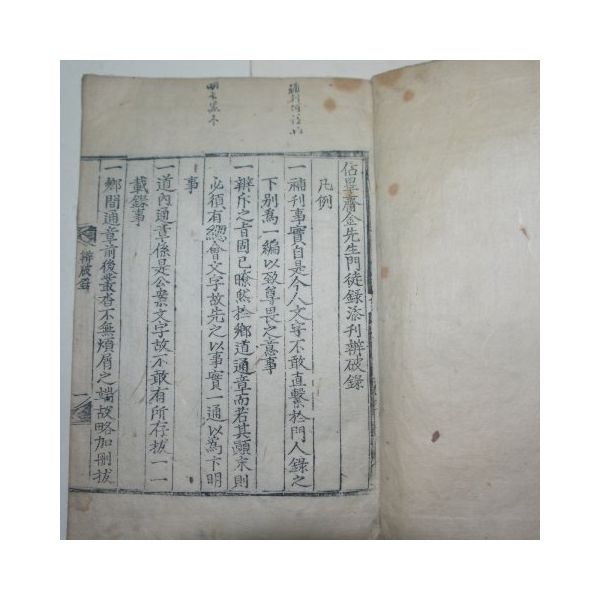 佔畢齋金先生門徒錄添刊辨破錄
凡例
一補刊事實自是今人文字不敢直繫於門人錄之
下別爲一編以致尊畏之意事
一辨斥之旨固已瞭然於鄕道通章而若其顚末則
必須有總會文字故先之以事實一通以爲卞明
事
一道內通書係是公衆文字故不敢有所存拔一一
載錄事
一鄕間通章前後叢沓不無煩屑之端故略加刪拔
辨破錄
一